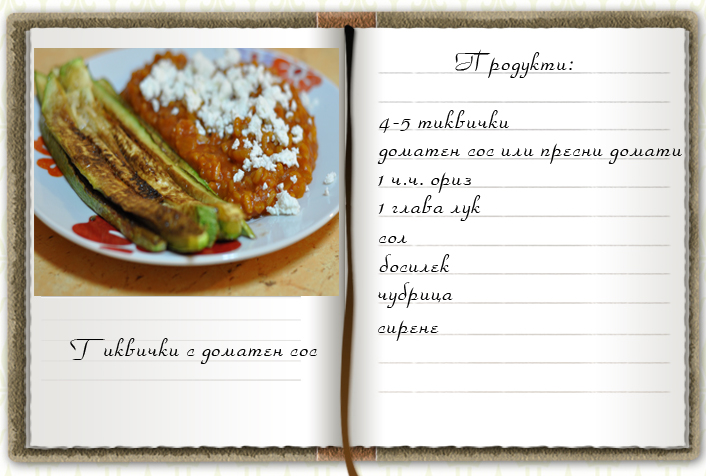 Тиквички с доматен сос
Продукти:
4-5 тиквички
доматен сос или пресни домати
1 ч.ч. ориз
1 глава лук
сол
босилек
чубрица
сирене